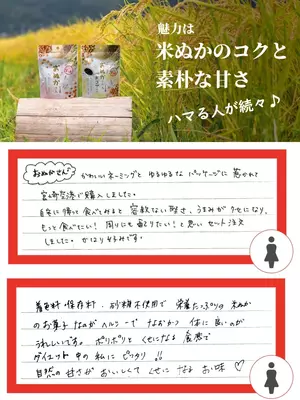 魅力は
米ぬかのコクと
素朴な甘さ
ハマる人が続々♪
おぬかさん
かわいいネーミングと ゆるゆるな パッケージに 惹かれて
宮崎空港で購入しました。
自宅に帰って食べてみると 容赦ない堅さ、うまみが クセになり、
もっと食べたい! 周りにも配りたい!と思い セット注文
しました。かなり好みです。
着色料・保存料・砂糖不使用で 栄養たっぷりの米ぬか
のお菓子 なのが ヘルシーで なおかつ 体に良いのが
うれしいです。ポリポリと くせになる 食感で
ダイエット中の私に ピッタリ!!
自然の 甘さが おいしくて くせになる お味♡